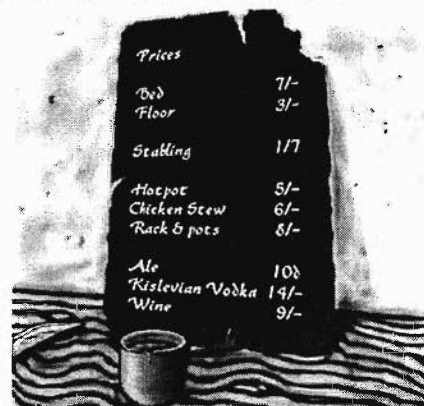 Prices
Bed 7/-
Floor 3/-
Stabling 1/7
Hotpot 5/-
Chicken Stew 6/-
Rack & pots 8/-
Ale 10d
Kislevian Vodka 14/-
Wine 9/-